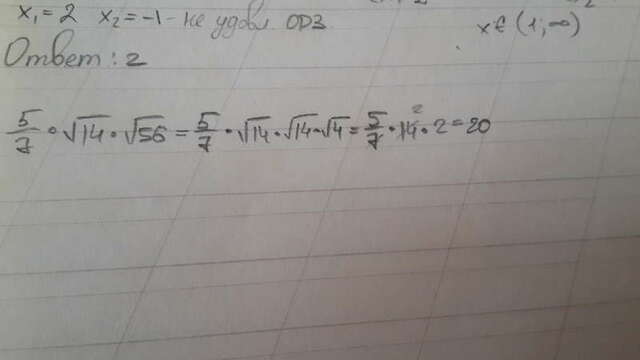 x₁ = 2 x₂ = -1 - не удовл ОДЗ x ∈ (1; ∞)
Ответ: 2
5/7 · √14 · √56 = 5/7 · √14 · √14 · √4 = 5/7 · 14 · 2 = 20